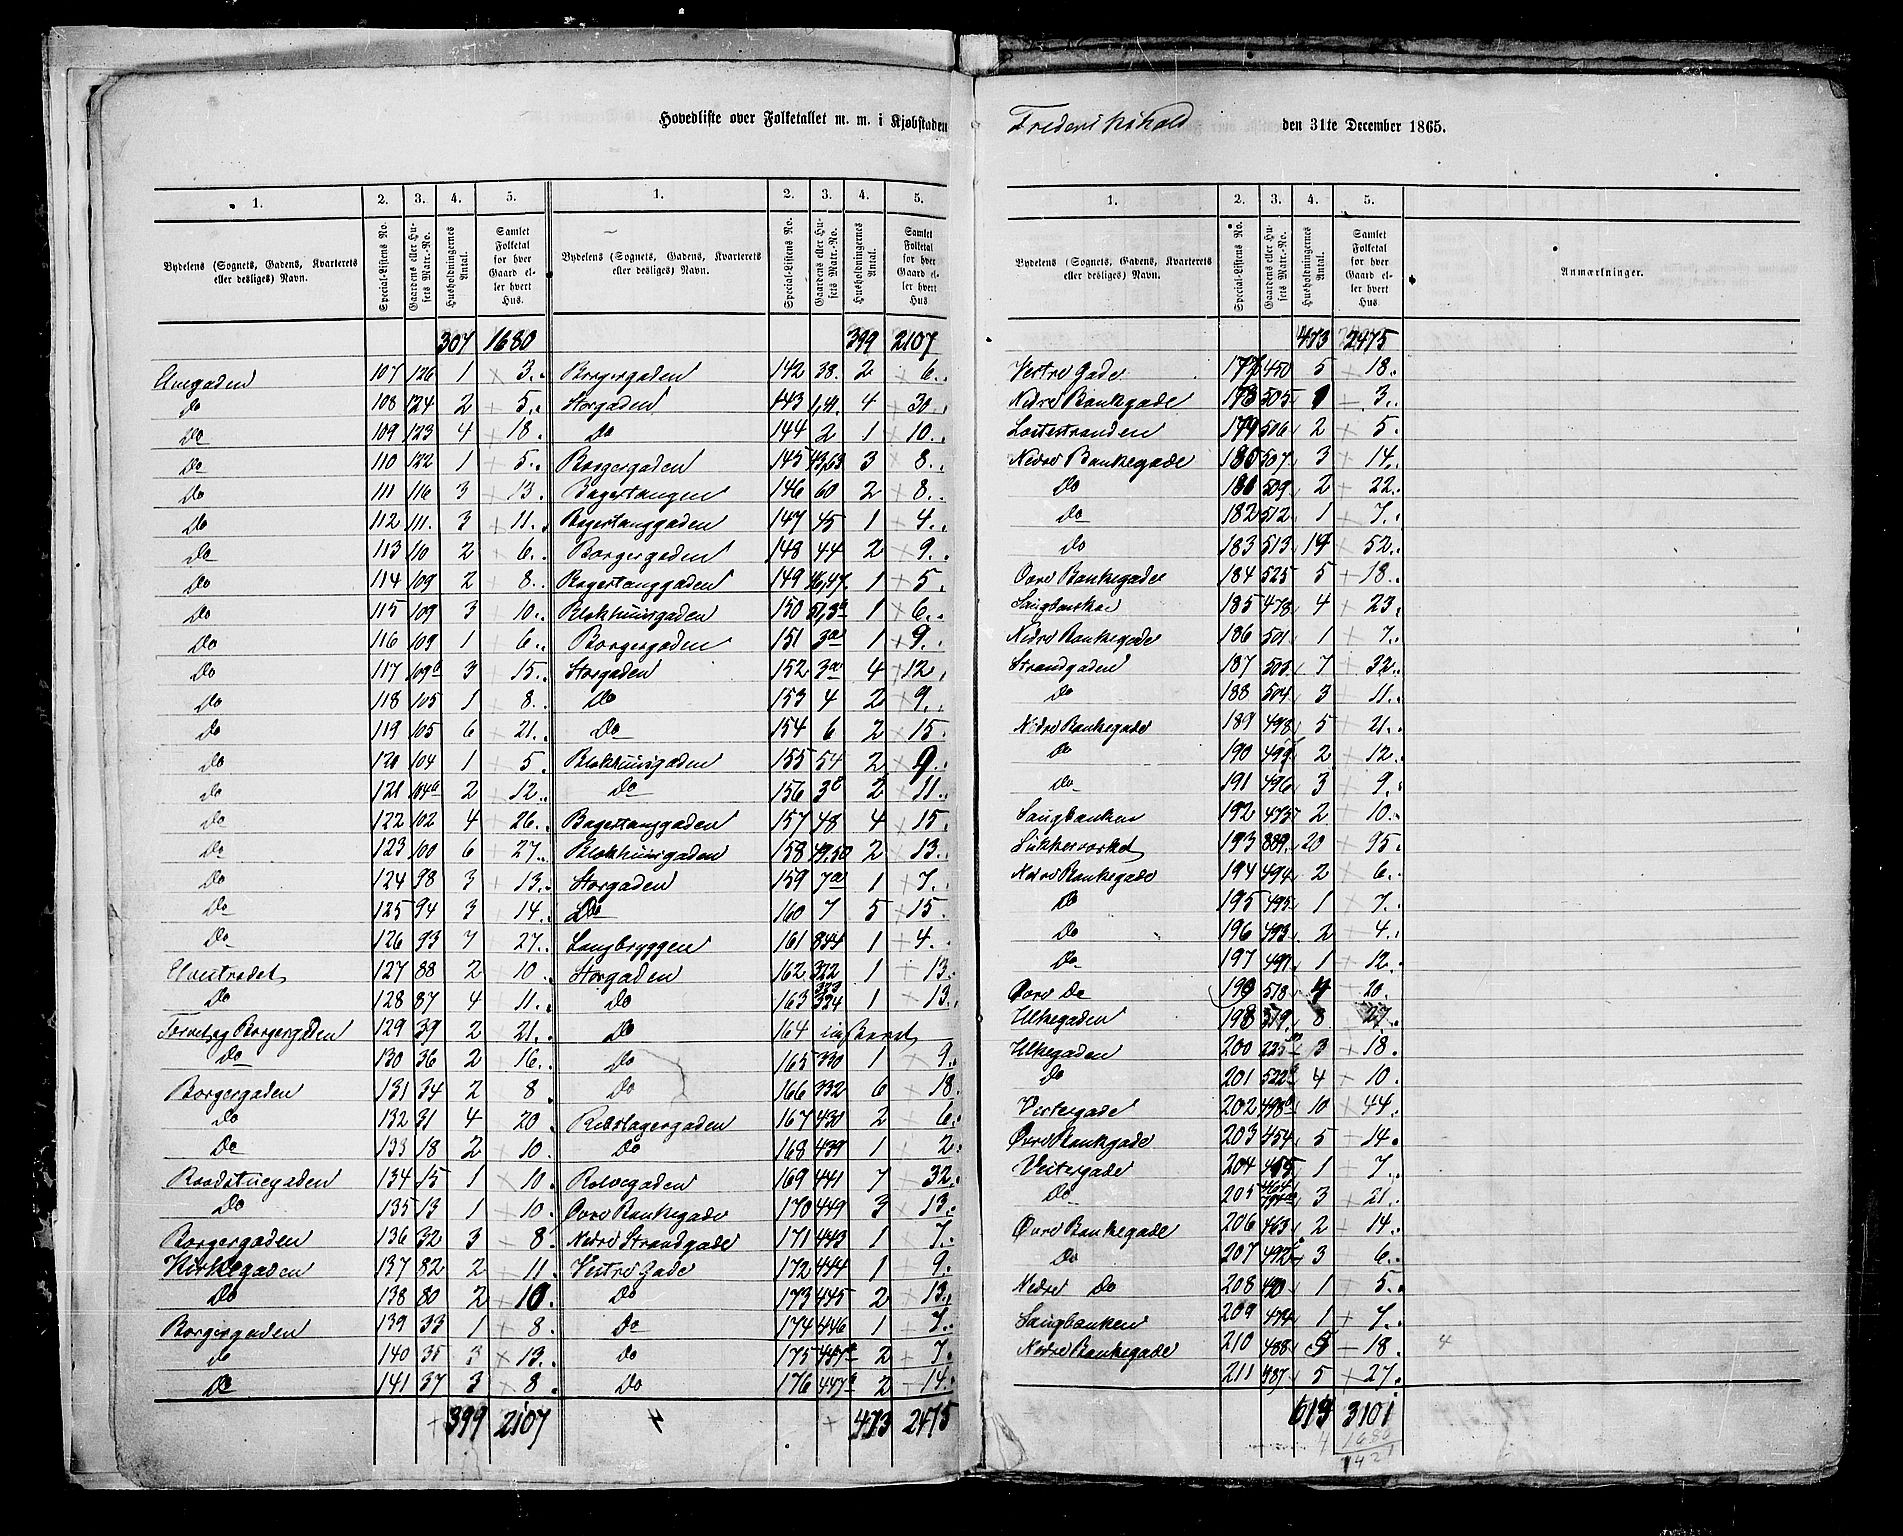 Hovedliste over Folketallet m. m. i Kjøbstaden Frederikshald den 31te December 1865.
1. 2. 3. 4. 5. 1. 2. 3. 4. 5.
Bydelens (Sognets, Gadens, Kvarterets eller desliges) Navn. Special-Listens No. Gaardens eller Husets Matr.-No. Husholdningernes Antal. Samlet Folketal for hver Gaard eller hvert Hus. Bydelens (Sognets, Gadens, Kvarterets eller desliges) Navn. Special-Listens No. Gaardens eller Husets Matr.-No. Husholdningernes Antal. Samlet Folketal for hver Gaard eller hvert Hus
307 1680 399 2107
107 126 1 3. Borgergaden 142 38. 2 6.
Do 108 124 2 5. Storgaden 143 1,41. 4 30.
Do 109 123 4 18. Do 144 2 1 10.
Do 110 122 1 5. Borgergaden 145 43,53 3 8.
Do 111 116 3 13. Bagertangen 146 60 2 8.
Do 112 111. 3 11. Bagertanggaden 147 45 1 4.
Do 113 110 2 6. Borgergaden 148 44 2 9.
Do 114 109 2 8. Bagertanggaden 149 46,47. 1 5
Do 115 109 3 10. Blokhuusgaden 150 1 6.
Do 116 109 1 6. Borgergaden 151 3a 1 9.
Do 117 109b 3 15. Storgaden 152 4 12
Do 118 105 1 8. Do 153 4 2 9.
Do 119 105 6 21. Do 154 6 2 15
Do 120 104 1 5. Blokhuusgaden 155 54 2 9.
Do 121 104a 2 12. Do 156 2 11.
Do 122 102 4 26. Bagertanggaden 157 48 4 15.
Do 123 100 6 27. Blokhuusgaden 158 49.50 2 13.
Do 124 98 3 13. Storgaden 159 7a 1 7.
Do 125 94 3 14. Do 160 7 5 15.
Do 126 93 7 27. Langbryggen 161 844 1 4.
Elvestrædet 127 88 2 10. Storgaden 162 322 1 13.
Do 128 87 4 11. Do 163 323 324 1 13.
Torvet og Borgergaden 129 39 2 21. Do 164
Do 130 36 2 16. Do 165 330 1 9.
Borgergaden 131 34 2 8 Do 166 332 6 18.
Do 132 31 4 20 Rebslagergaden 167 430 2 6.
Do 133 18 2 10 Do 168 439 1 2.
Raadstuegaden 134 15 1 10 169 441 7 32.
Do 135 13 1 10. Øvre Bankegade 170 449 3 13.
Borgergaden 136 32 3 8 Nedre Strandgade 171 443 1 7.
Kirkegaden 137 82 2 11. Vestre Gade 172 444 1 9.
Do 138 80 2 10. Do 173 445 2 13.
Borgergaden 139 33 1 8. Do 174 446 1 7.
do 140 35 3 13. Do 175 2 7.
Do 141 37 3 8. Do 176 2 14.
399 2107 473 2475
1. 2. 3. 4. 5.
Bydelens (Sognets, Gadens, Kvarterets eller desliges) Navn. Special-Listens No. Gaardens eller Husets Matr.-No. Husholdningernes Antal. Samlet Folketal for hver Gaard eller hvert Hus. Anmærkninger.
473 2475
Vestre Gade 177 450 5 18.
Nedre Bankegade 178 505 1 3.
179 506 2 5.
Nedre Bankegade 180 507 3 14.
Do 181 509 2 22.
Do 182 512 1 7.
Do 183 513 14 52.
Øvre Bankegade 184 525 5 18.
Saugbanken 185 478 4 23.
Nedre Bankegade 186 501 1 7.
Strandgaden 187 503 7 32.
Do 188 504 3 11.
Nedre Bankegade 189 498 5 21.
Do 190 499 2 12.
Do 191 496 3 9.
Saugbanken 192 473 2 10.
Sukkerværket 193 889. 20 95.
Nedre Bankegade 194 494 2 6.
Do 195 495 1 7.
Do 196 493 2 4.
Do 197 491 1 12.
Øvre Do 518 4 20.
Ulkegaden 198 519 8 27.
Ulkegaden 200 3 18.
Do 201 4 10.
Vestergade 202 10 44.
Øvre Bankgade 203 454 5 14.
Vestergade 204 455 1 7.
Do 205 3 21.
Øvre Bankegade 206 463 2 14.
Do 207 492 3 6.
Nedre Do 208 490 1 5.
Saugbanken 209 474 1 7.
Nedre Bankegade 210 488 5 18. 4
211 487 5 27.
613 3101
4 1680
1421